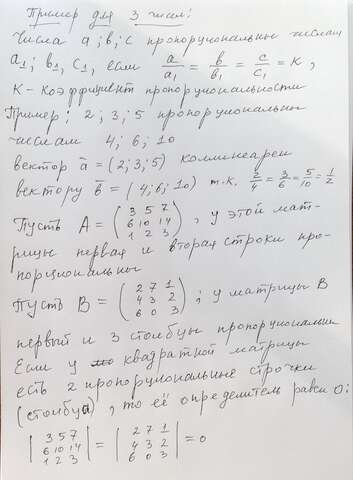 Пример для 3 чисел:
Числа a; b; c пропорциональны числам
a₁; b₁, c₁, если a/a₁ = b/b₁ = c/c₁ = k,
k - коэффициент пропорциональности
Пример: 2; 3; 5 пропорциональны
числам 4; 6; 10
вектор a̅ = (2; 3; 5) коллинеарен
вектору b̅ = (4; 6; 10) т.к. 2/4 = 3/6 = 5/10 = 1/2
Пусть A = (3 5 7
6 10 14
1 2 3), у этой мат-
рицы первая и вторая строки про-
порциональны
Пусть B = (2 7 1
4 3 2
6 0 3), у матрицы B
первый и 3 столбцы пропорциональны
Если у квадратной матрицы
есть 2 пропорциональные строчки
(столбца), то её определитель равен 0:
|3 5 7
6 10 14
1 2 3| = |2 7 1
4 3 2
6 0 3| = 0